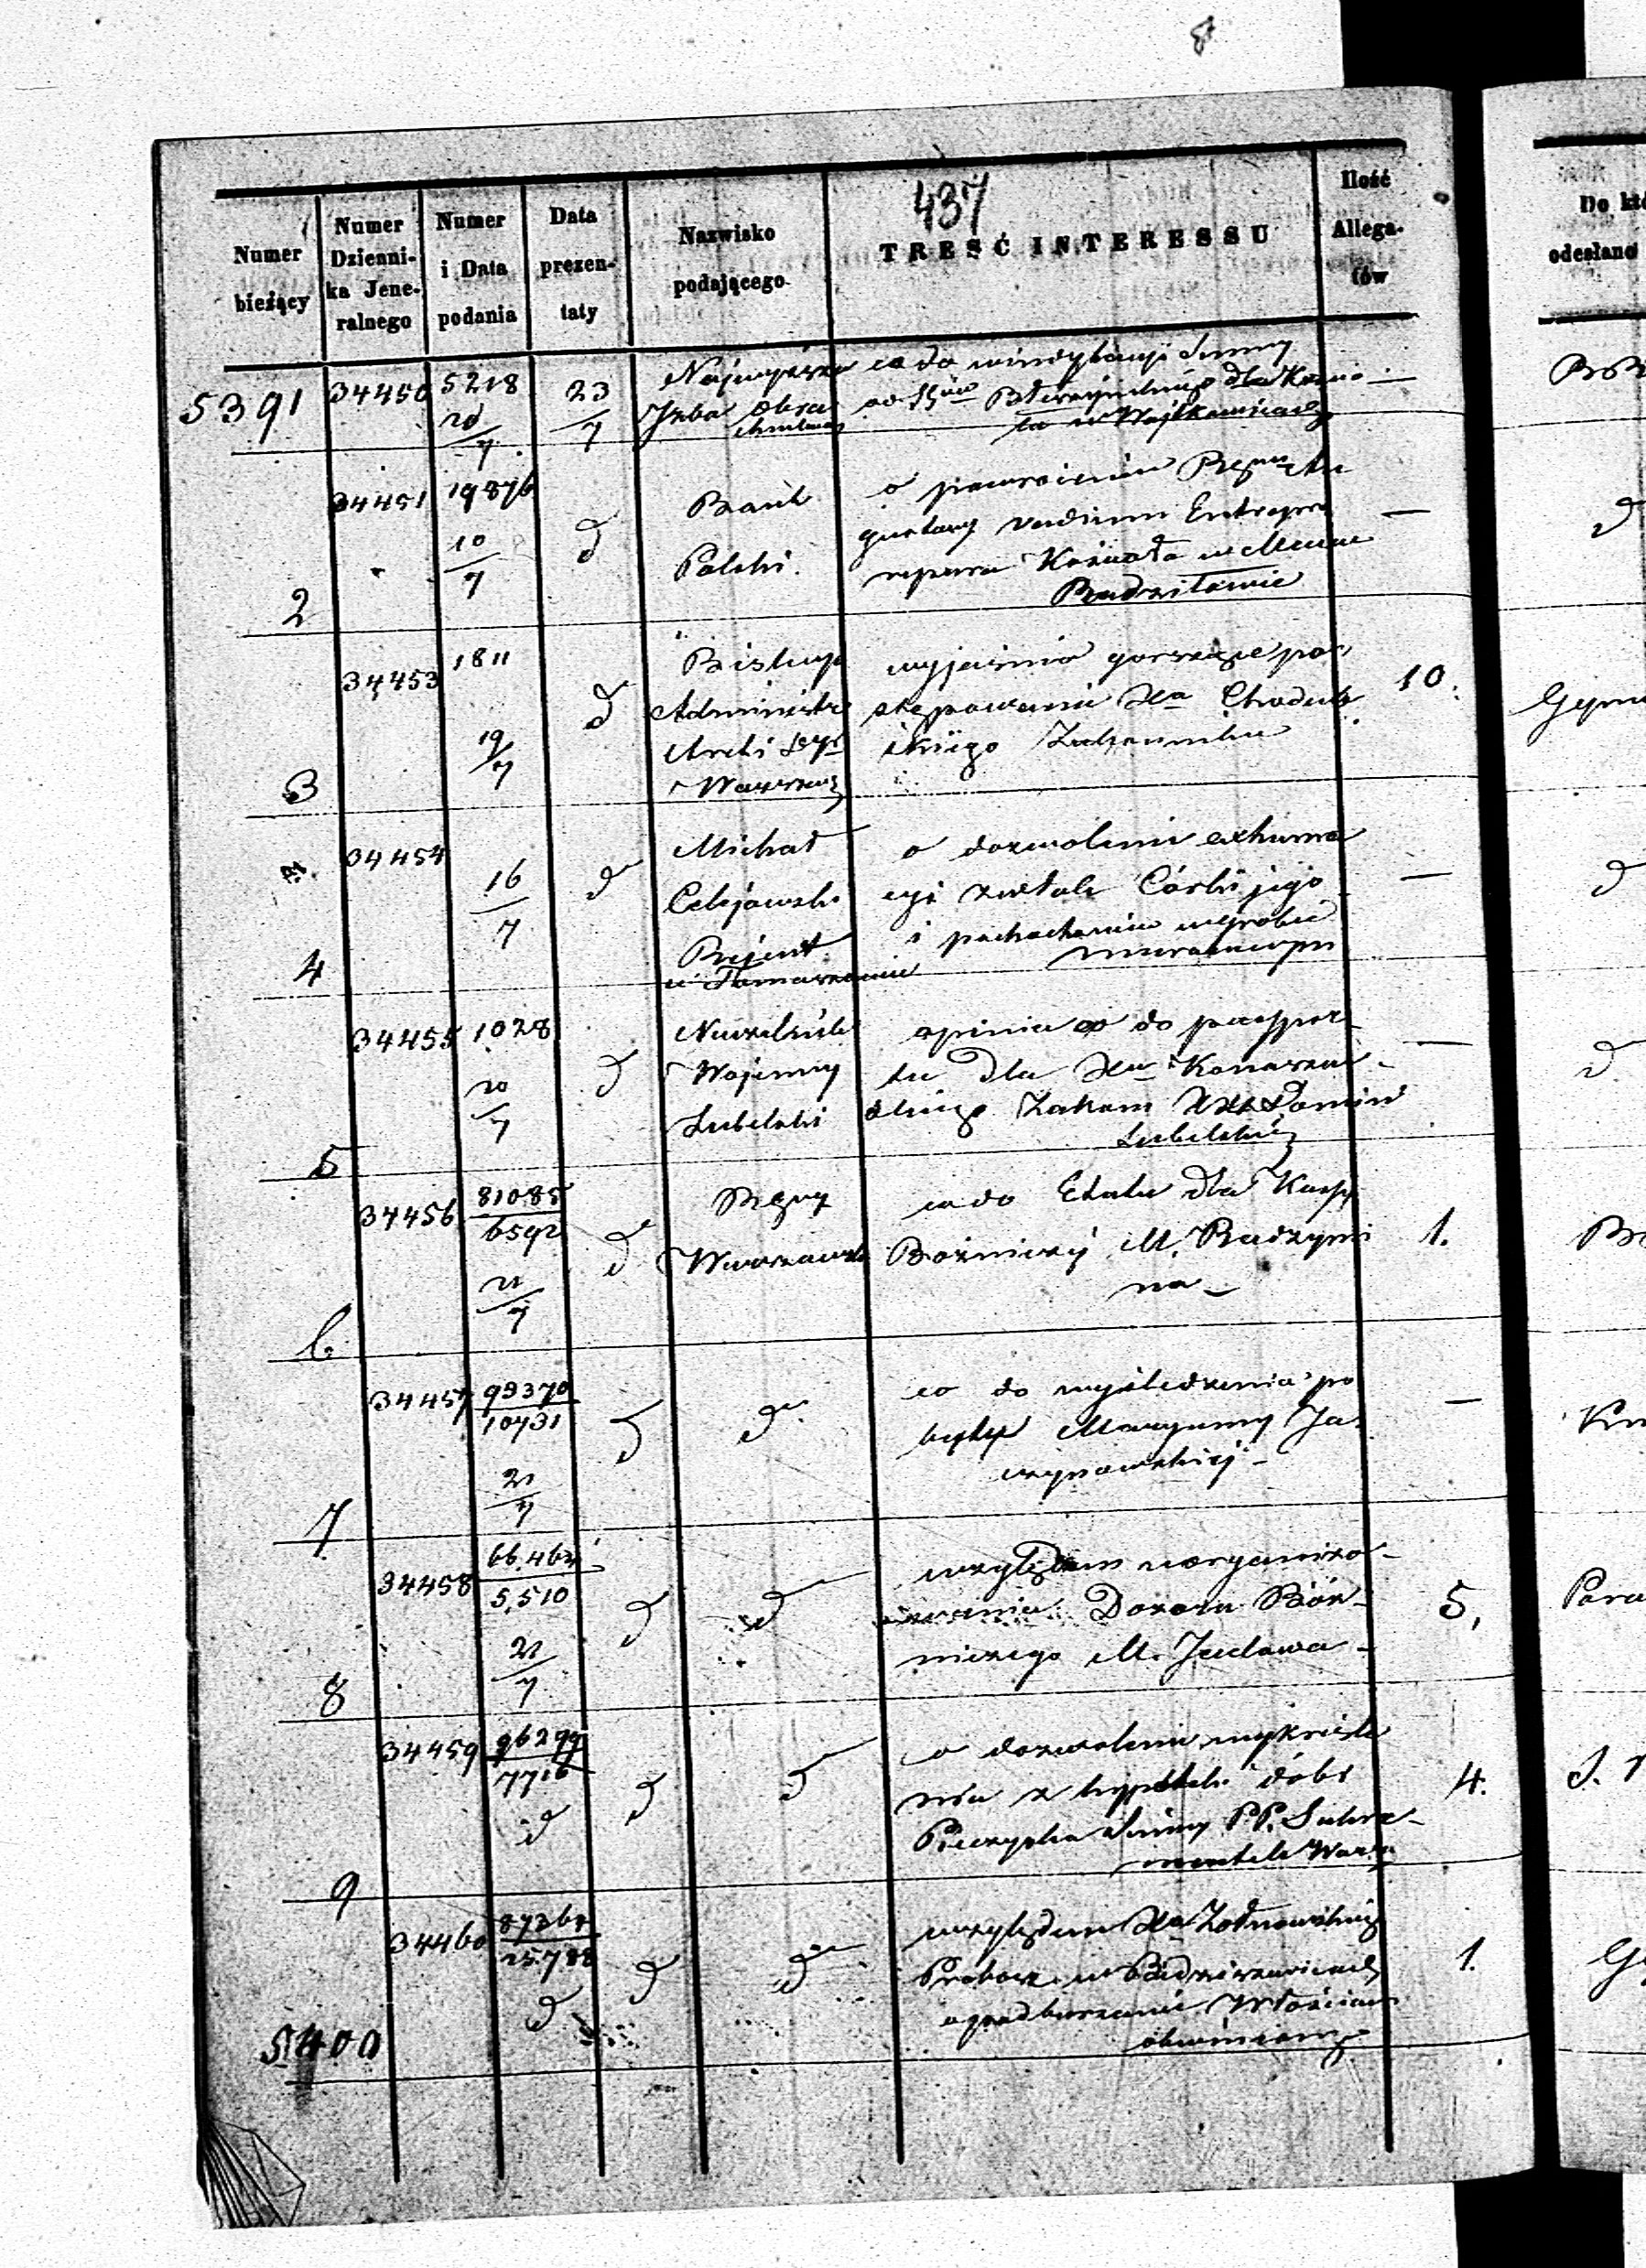 437
Numer bieżący
Numer Dzienni- ka Jene- ralnego
Numer i Data podania
Data prezen- taty
Nazwisko podającego
TREŚĆ INTERESSU
Ilość Allega- tów
Do któ
odesłano
5391 34450 5218 20/7 23/7
Najwyższa
Izba Obra
chunkowa
co do windykacyi Summy
dla Kościo
ła w Wójtkowicach
—
2 34451 19876 10/7 d
Bank
Polski.
o powrócenie
vadium Entrepr
repara Kościoła w
Radziłowie
—
d
3 34453 1811 19/7 d
Biskup
Administr
Archi Dyi
Warszaws
wyjaśnia gorszące po
stępowanie Xa Chodub
skiego Zakonnika
10.
4 34454 16/7 d
Michał
Celejowski
Rejent
w Tomaszowie
o dozwolenie exhuma
cyi zwłok Córki jego
i pochowanie w grobie
murowanym
—
d
5 34455 1028 20/7 d
Naczelnik
Wojenny
Lubelski
opinia co do paszpor-
tu dla Xa Konarzew-
skiego Zakonu XX Domin
Lubelskiej
—
d
6 34456 81085/6592 21/7 d
Rząd
Warszawsk
co do Etatu dla Kassy
Bóżniczéj M. Radzymi
na
1.
7 34457 99370/10731 21/7 d d
co do wyśledzenia po
bytu Maryanny Ja
czynowskiej
—
8 34458 66.462/5,510 21/7 d d
względem uorganizo-
wania Dozoru Bóż-
niczego M. Jadowa
5,
9 34459 96299/7716 d d d
o dozwolenie wykreśle
nia z hypotek dóbr
Pieczyska Summy P.P. Sakra-
mentek Warsz
4.
5400 34460 87368/25.788 d d d
względem Xa Żołnowskiego
Probosz. w
o podburzanie Włościan
obwinionego
1.